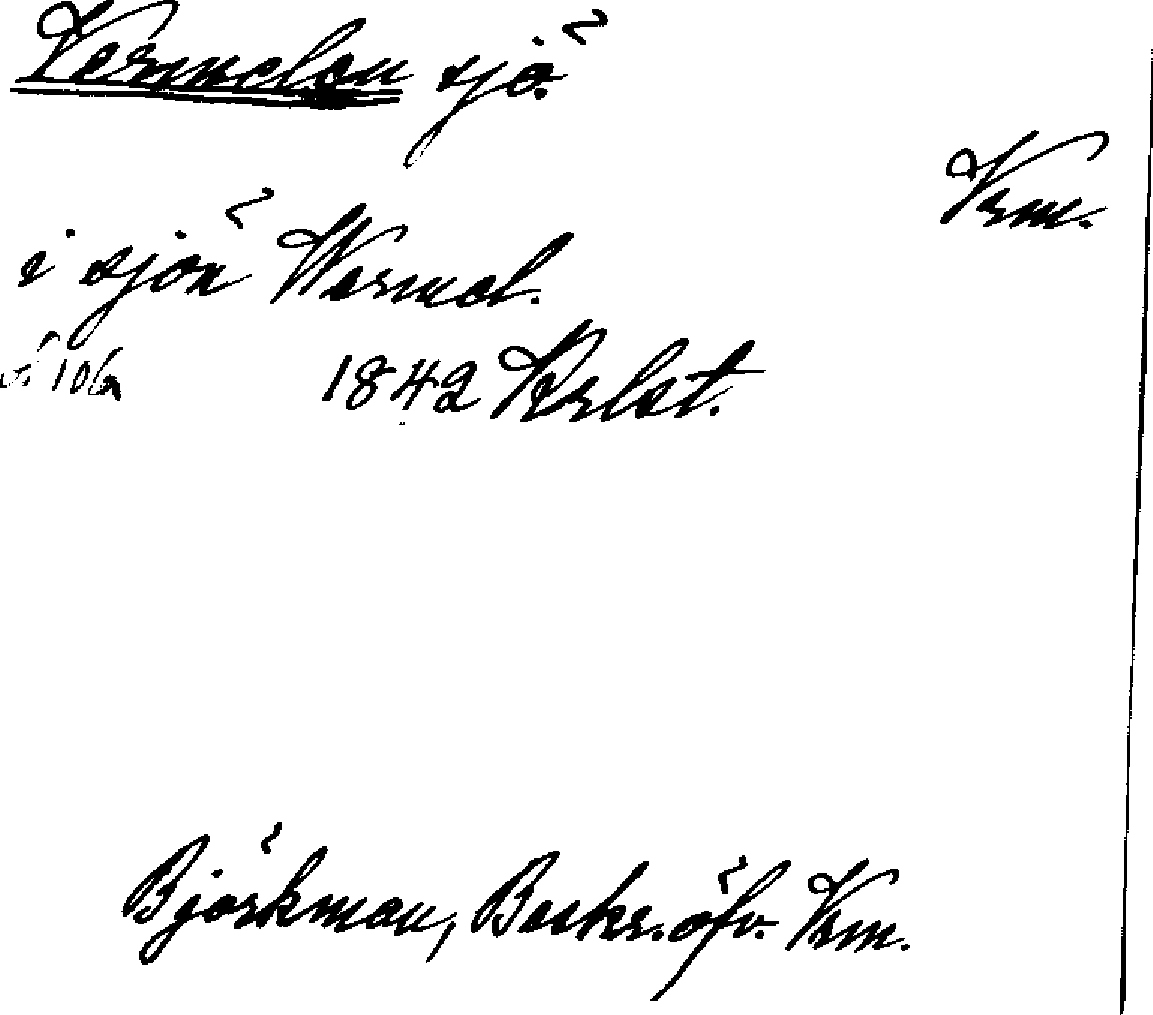 Vermelen sjö.
Vrm.
i sjön Wermel.
s. 106 1842 Krlst.
Björkman, Beskr. öfv. Vrm.